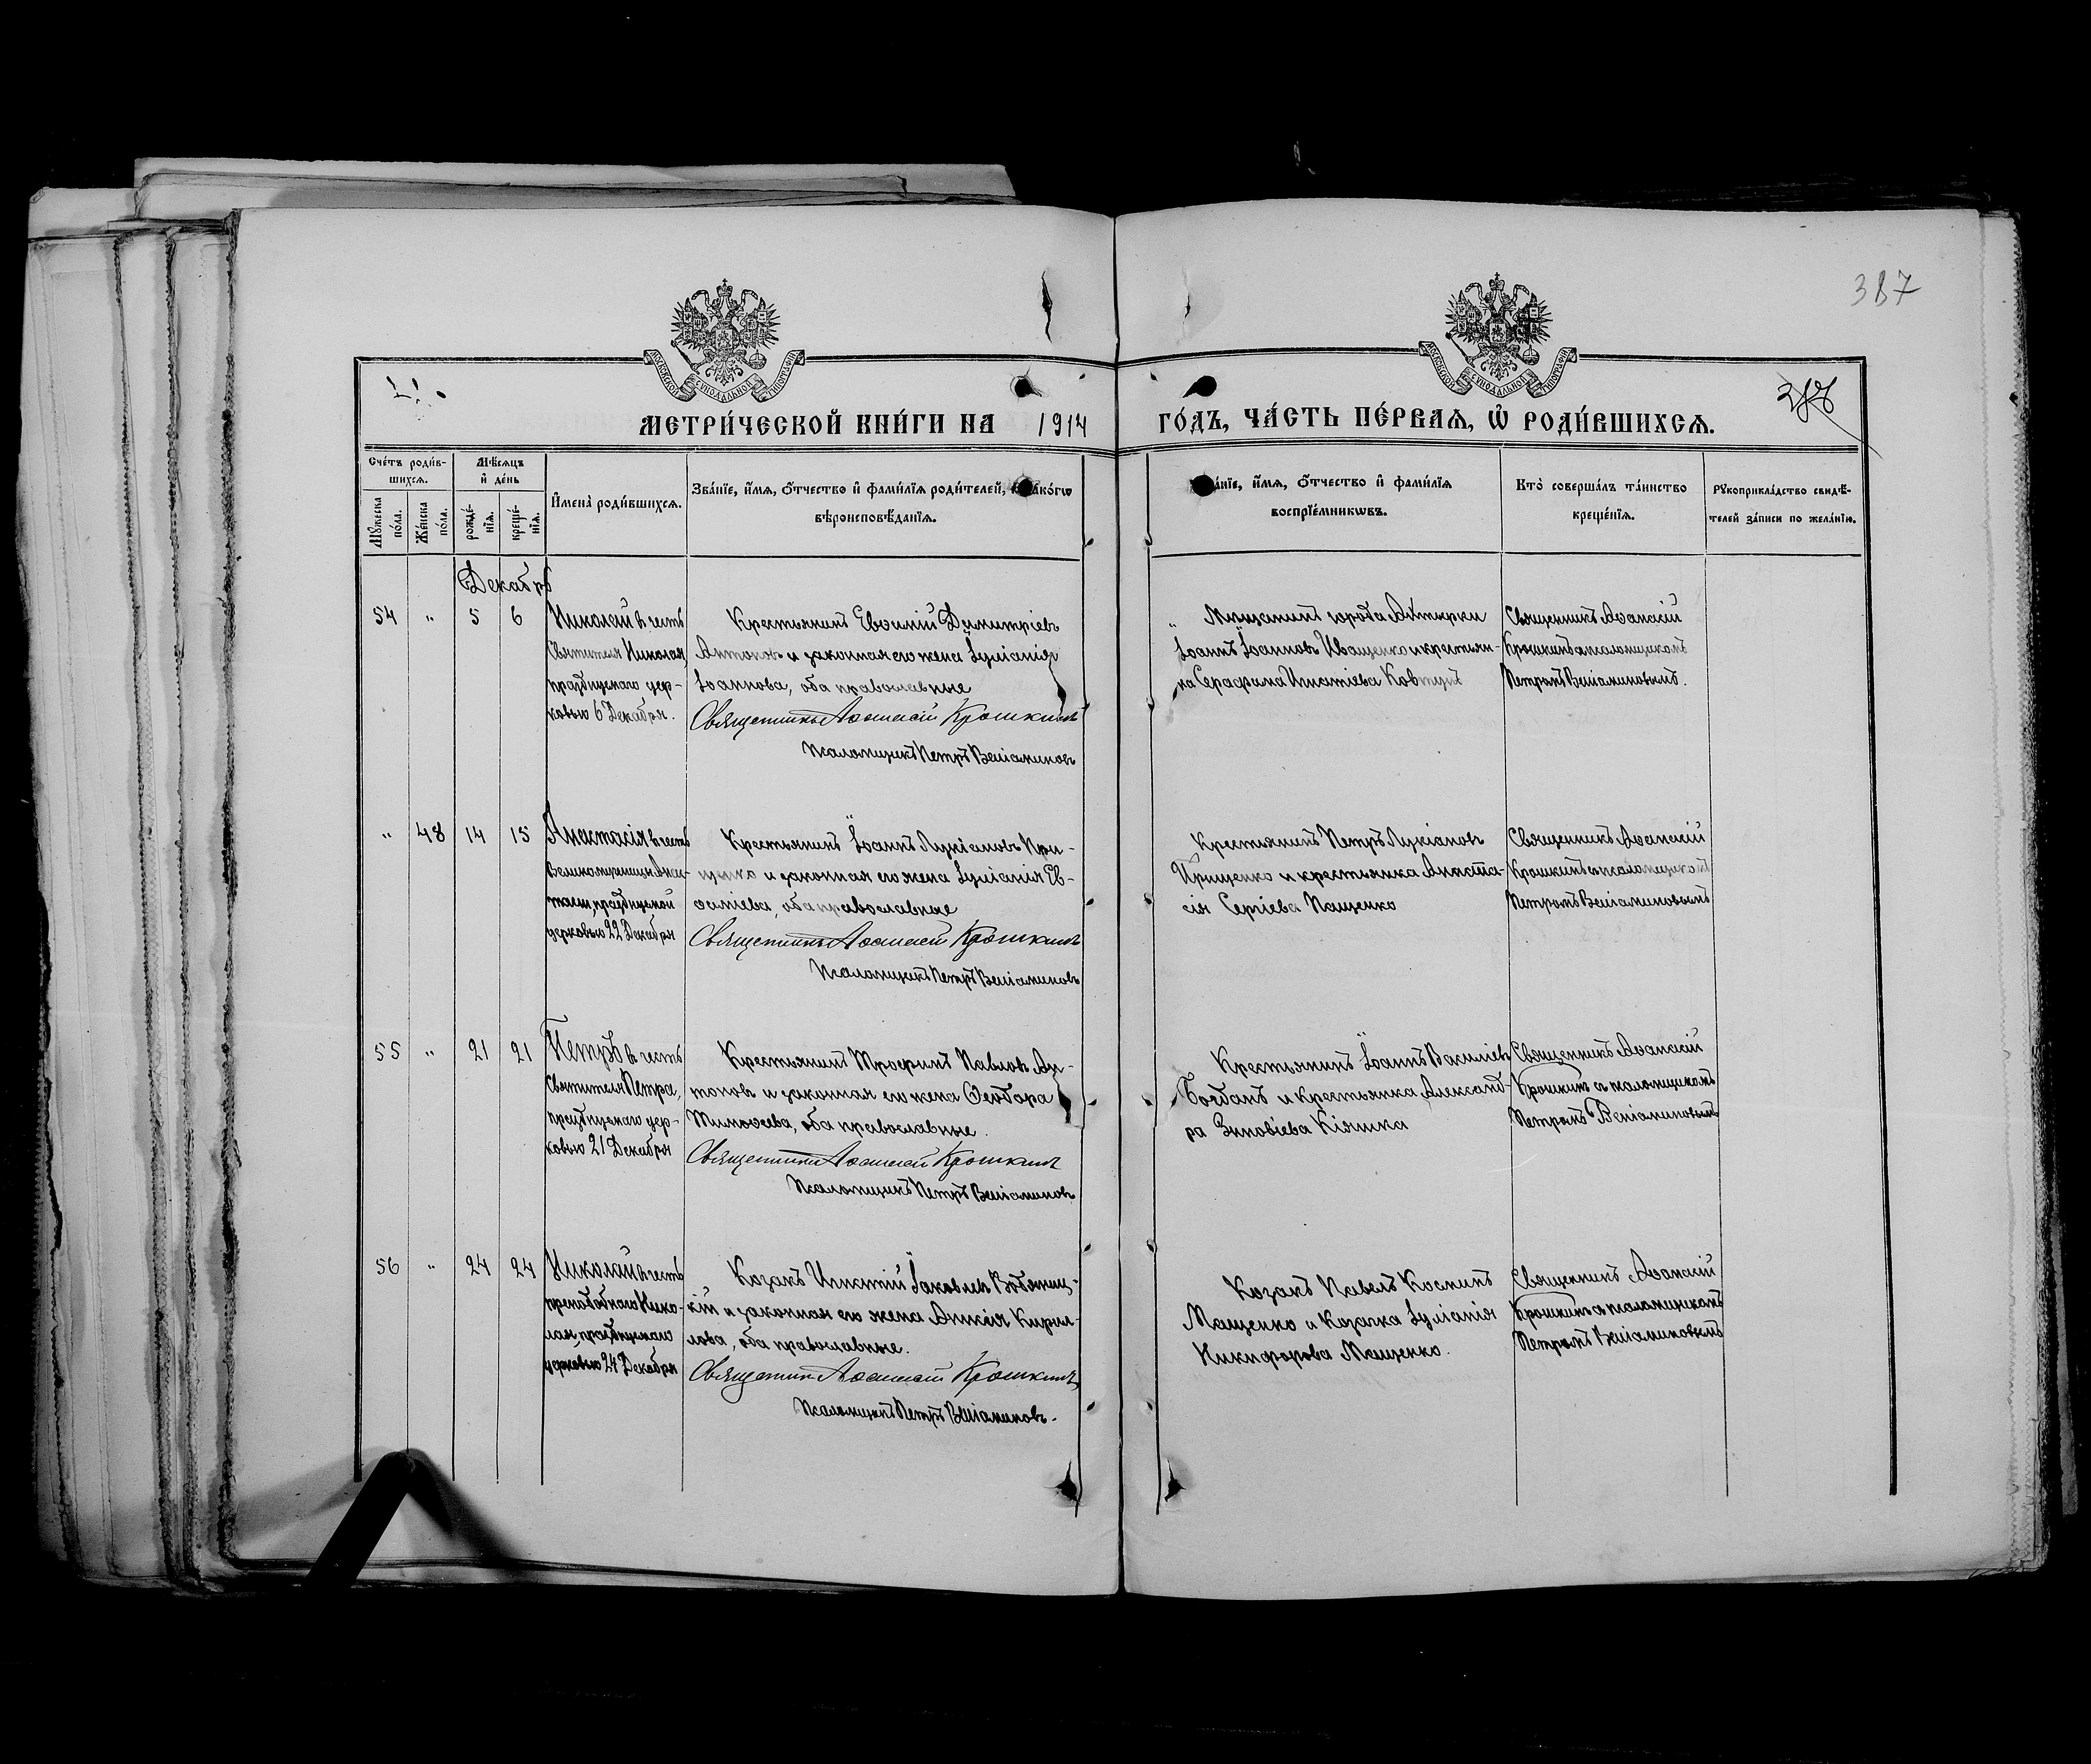 387
МОСКОВСКОЙ СѴНОДАЛЬНОЙ ТИПОГРАФІИ
МОСКОВСКОЙ СѴНОДАЛЬНОЙ ТИПОГРАФІИ
МЕТРИ́ЧЕСКОЙ КНИ́ГИ НА 1914 ГО́ДЪ, ЧА́СТЬ ПЕ́РВАЯ, Ѡ҆ РОДИ́ВШИХСЯ.
Сче́тъ роди́в-
шихся.
Мꙋ́жеска по́ла.
Же́нска по́ла.
Мѣ́сяцъ
и҆ де́нь
рожде́-
нїя.
креще́-
нїя.
И҆мена̀ роди́вшихся.
Зва́нїе, и҆́мя, ѻ҆́тчество и҆ фами́лїя роди́телей, и҆ како́гѡ
вѣроисповѣ́данїя.
Зва́нїе, и҆́мя, ѻ҆́тчество и҆ фами́лїя
воспрїе́мникѡвъ.
Кто̀ соверша́лъ та́инство
креще́нїя.
Рꙋкоприкла́дство свидѣ́-
телей за́писи по жела́нїю.
Декабрь
54 " 5 6
Николай въ честь
Святителя Николая,
празднуемаго цер-
ковью 6 Декабря.
Крестьянинъ Евѳимій Димитріевъ
Антоновъ и законная его жена Іуліанія
Іоаннова, оба православные
Священникъ Аѳанасій Крошкинъ
Псаломщикъ Петръ Веніаминовъ
Мѣщанинъ города Ахтырки
Іоаннъ Іоанновъ Иващенко и крестьян-
ка Серафима Игнатіева Ковтунъ
Священникъ Аѳанасій
Крошкинъ съ псаломщикомъ
Петромъ Веніаминовымъ.
" 48 14 15
Анастасія въ честь
Великомученицы Анас-
тасіи, празднуемой
церковью 22 Декабря
Крестьянинъ Іоаннъ Лукіановъ Гри-
щенко и законная его жена Іуліанія Ев-
ѳиміева, оба православные
Священникъ Аѳанасій Крошкинъ
Псаломщикъ Петръ Веніаминовъ
Крестьянинъ Петръ Лукіановъ
Грищенко и крестьянка Анаста-
сія Сергіева Пащенко
Священникъ Аѳанасій
Крошкинъ съ псаломщикомъ
Петромъ Веніаминовымъ
55 " 21 21
Петръ въ честь
Святителя Петра,
празднуемаго цер-
ковью 21 Декабря
Крестьянинъ Трофимъ Павловъ Ан-
тоновъ и законная его жена Ѳеодора
Тимоѳеева, оба православные.
Священникъ Аѳанасій Крошкинъ
Псаломщикъ Петръ Веніаминовъ
Крестьянинъ Іоаннъ Василіевъ
Богданъ и крестьянка Александ-
ра Зиновіева Кіяшка
Священникъ Аѳанасій
Крошкинъ съ псаломщикомъ
Петромъ Веніаминовымъ
56 " 24 24
Николай въ честь
преподобнаго Нико-
лая, празднуемаго
церковью 24 Декабря
Козакъ Игнатій Іаковлевъ
кій и законная его жена Анисія Кирил-
лова, оба православные.
Священникъ Аѳанасій Крошкинъ
Псаломщикъ Петръ Веніаминовъ.
Козакъ Павелъ Косминъ
Мащенко и Козачка Іуліанія
Никифорова Мащенко.
Священникъ Аѳанасій
Крошкинъ съ псаломщикомъ
Петромъ Веніаминовымъ